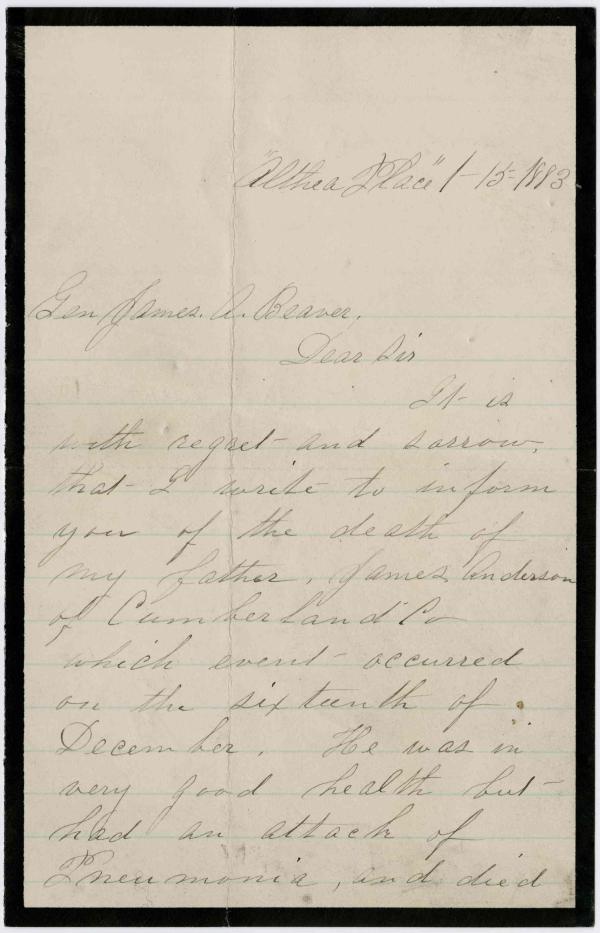 "Althea Place" 1-15-1883
Gen James. A. Beaver.
Dear Sir
It is
with regret and sorrow,
that I write to inform
you of the death of
my father, James Anderson
of Cumberland Co
which event occurred
on the sixteenth of
December. He was in
very good health but
had an attack of
Pneumonia, and died